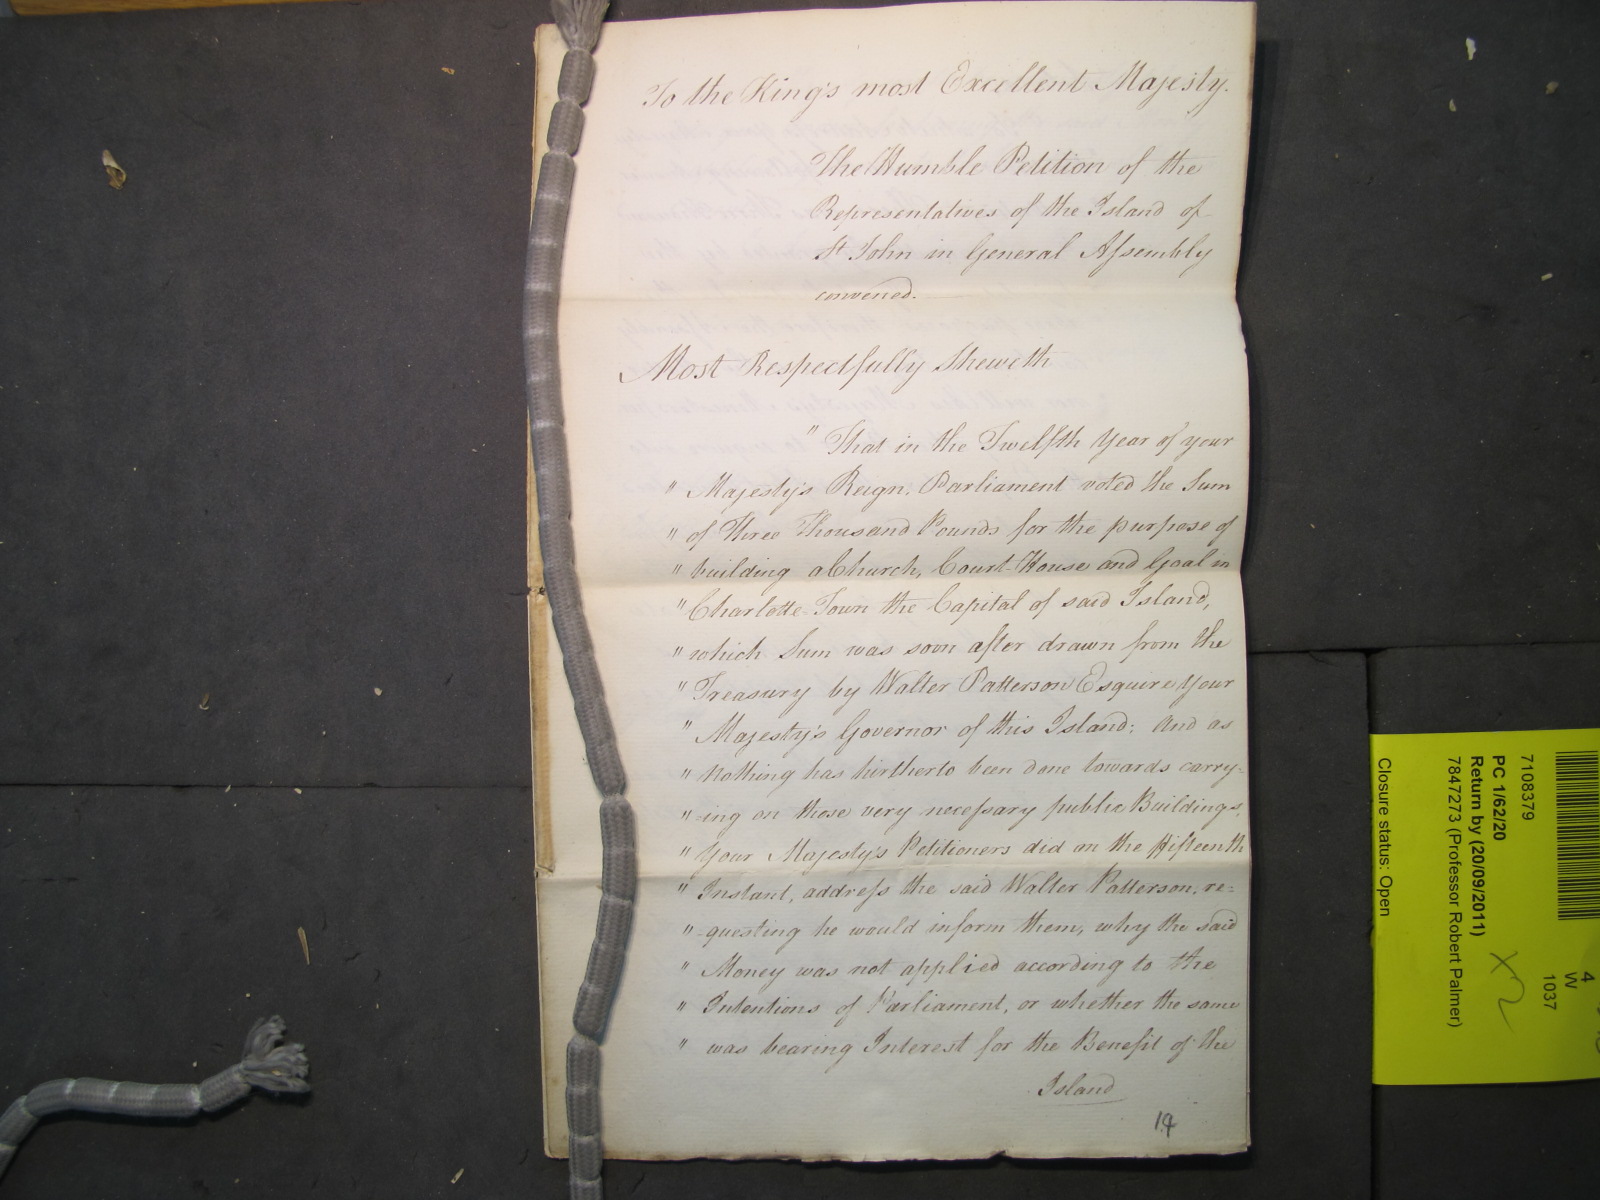 To the King's most Excellent Majesty.
The Humble Petition of the
Representatives of the Island of
St John in General Assembly
convened.
Most Respectfully Sheweth
" That in the Twelfth Year of your
" Majesty's Reign, Parliament voted the Sum
" of Three Thousand Pounds for the purpose of
" building a Church, Court-House and Goal in
" Charlotte-Town the Capital of said Island,
" which Sum was soon after drawn from the
" Treasury by Walter Patterson Esquire your
" Majesty's Governor of this Island; And as
" nothing has hirtherto been done towards carry=
" -ing on those very necessary public Buildings,
" Your Majesty's Petitioners did on the fifteenth
" Instant, address the said Walter Patterson, re=
" -questing he would inform them, why the said
" Money was not applied according to the
" Intentions of Parliament, or whether the same
" was bearing Interest for the Benefit of the
Island
19
7108379
PC 1/62/20
Return by (20/09/2011)
7847273 (Professor Robert Palmer)
Closure status: Open
4
W
1037
x2